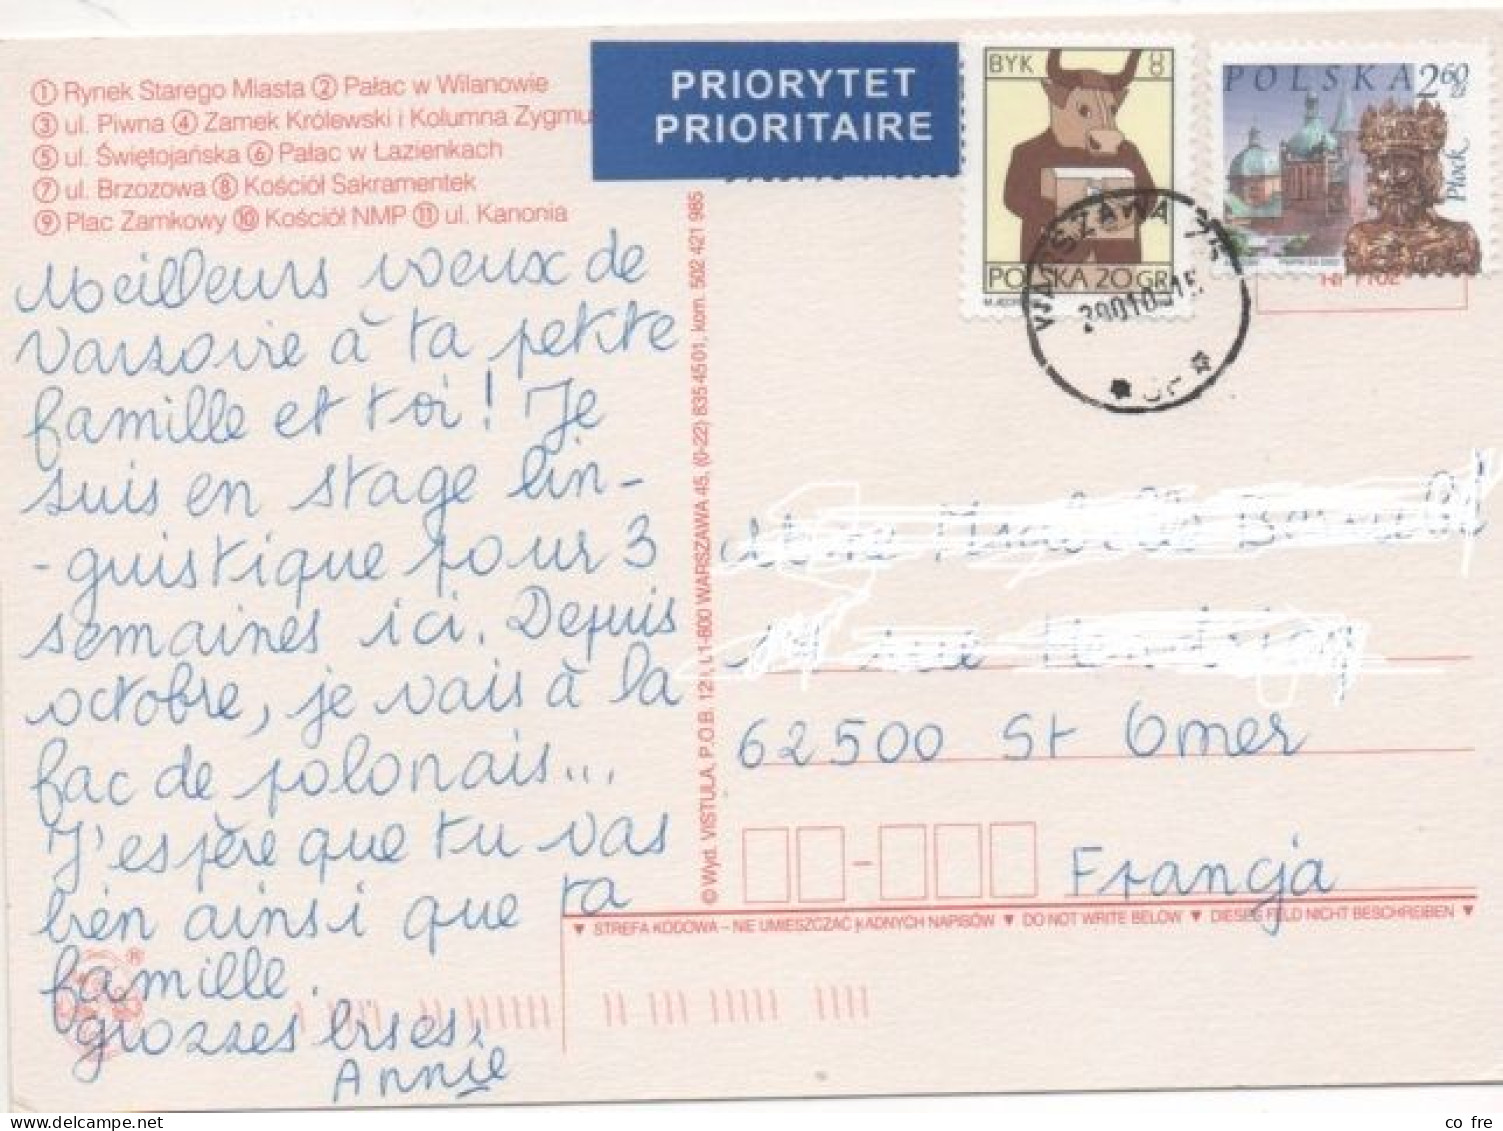 ① Rynek Starego Miasta ② Pałac w Wilanowie
③ ul. Piwna ④ Zamek Królewski i Kolumna Zygmu
⑤ ul. Świętojańska ⑥ Pałac w Łazienkach
⑦ ul. Brzozowa ⑧ Kościół Sakramentek
⑨ Plac Zamkowy ⑩ Kościół NMP ⑪ ul. Kanonia
PRIORYTET
PRIORITAIRE
BYK
POLSKA 20 GR
POLSKA 2 60 ZŁ
Płock
WARSZAWA
Meilleurs voeux de
Varsovie à ta petite
famille et toi ! Je
suis en stage lin-
-guistique pour 3
semaines ici. Depuis
octobre, je vais à la
fac de polonais...
J'espère que tu vas
bien ainsi que ta
famille.
grosses bises,
Annie
© Wyd. VISTULA, P.O.B. 129, L1-800 WARSZAWA 45, (0-22) 835 45 01, kom. 502 421 985
62500 St Omer
Francja
▼ STREFA KODOWA – NIE UMIESZCZAĆ ŻADNYCH NAPISÓW ▼ DO NOT WRITE BELOW ▼ DIESES FELD NICHT BESCHREIBEN ▼
®
delcampe.net
co fre